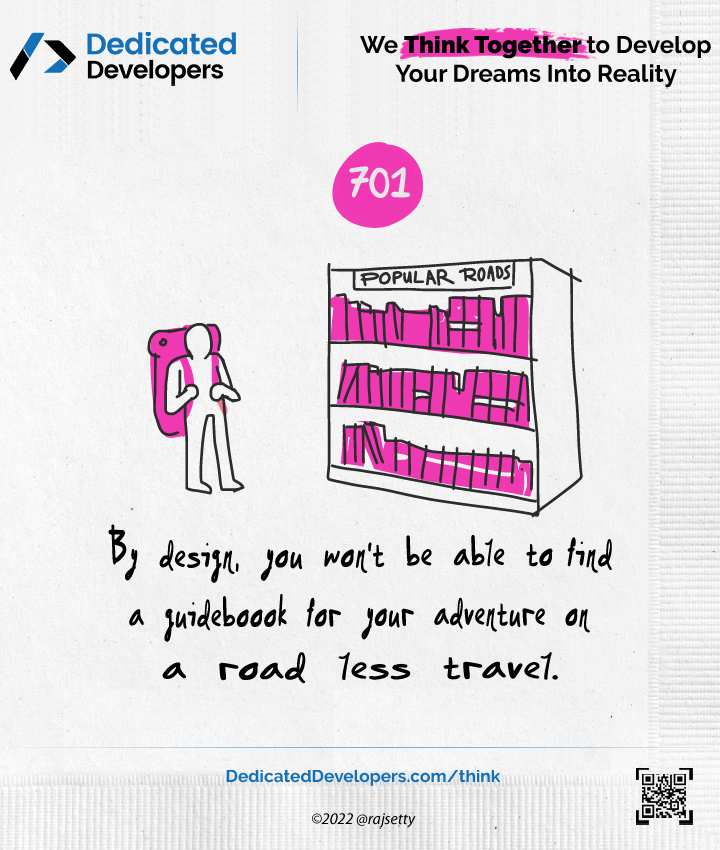 Dedicated
Developers
We Think Together to Develop
Your Dreams Into Reality
701
POPULAR ROADS
By design, you won't be able to find
a guideboook for your adventure on
a road less travel.
DedicatedDevelopers.com/think
©2022 @rajsetty